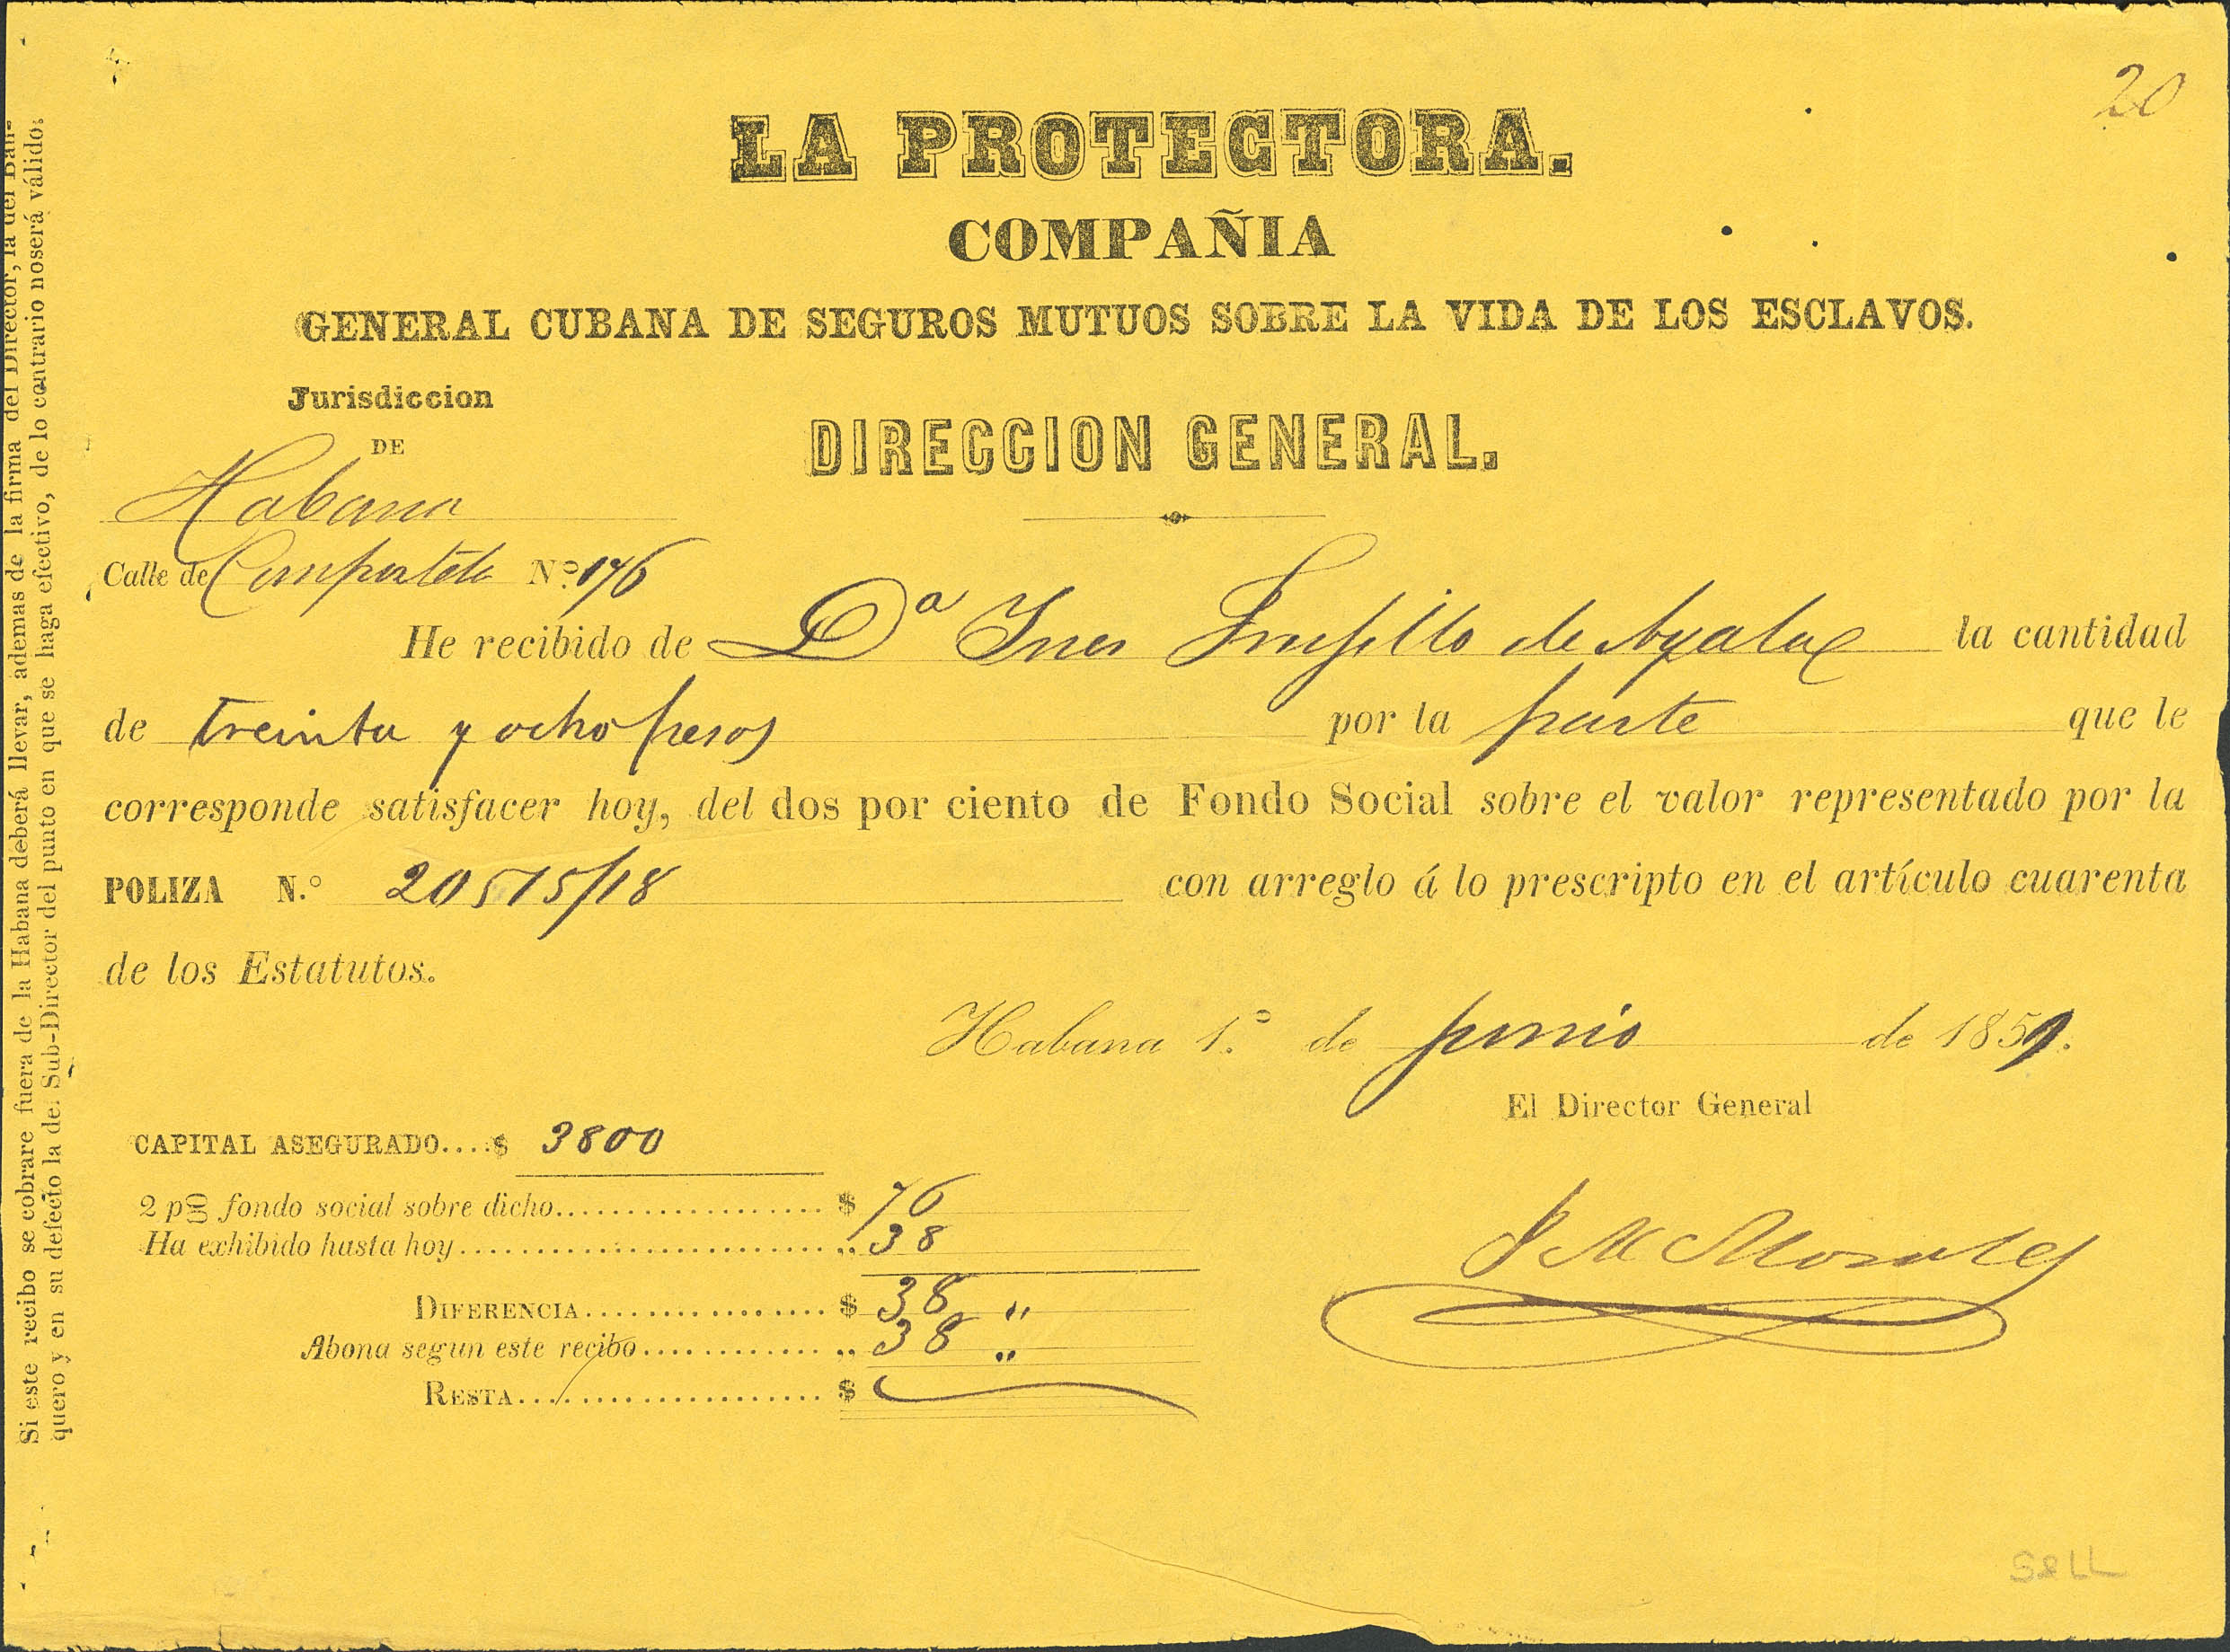 20
LA PROTECTORA.
COMPAÑIA
GENERAL CUBANA DE SEGUROS MUTUOS SOBRE LA VIDA DE LOS ESCLAVOS.
Jurisdiccion
DE
Habana
DIRECCION GENERAL.
Calle de Compostela N.º 176
He recibido de Dª Ines Trujillo de Ayala la cantidad
de treinta y ocho pesos por la parte que le
corresponde satisfacer hoy, del dos por ciento de Fondo Social sobre el valor representado por la
POLIZA N.º 20515/18 con arreglo á lo prescripto en el artículo cuarenta
de los Estatutos.
Habana 1.º de junio de 1859.
El Director General
CAPITAL ASEGURADO....$ 3800
2 p% fondo social sobre dicho.................... $ 76
Ha exhibido hasta hoy............................ „ 38
DIFERENCIA.................. $ 38 „
Abona segun este recibo.............. „ 38 „
RESTA....................... $
J M Morales
Si este recibo se cobrare fuera de la Habana deberá llevar, ademas de la firma del Director, la del Ban-
quero y en su defecto la del Sub-Director del punto en que se haga efectivo, de lo contrario noserá válido.
S&LL